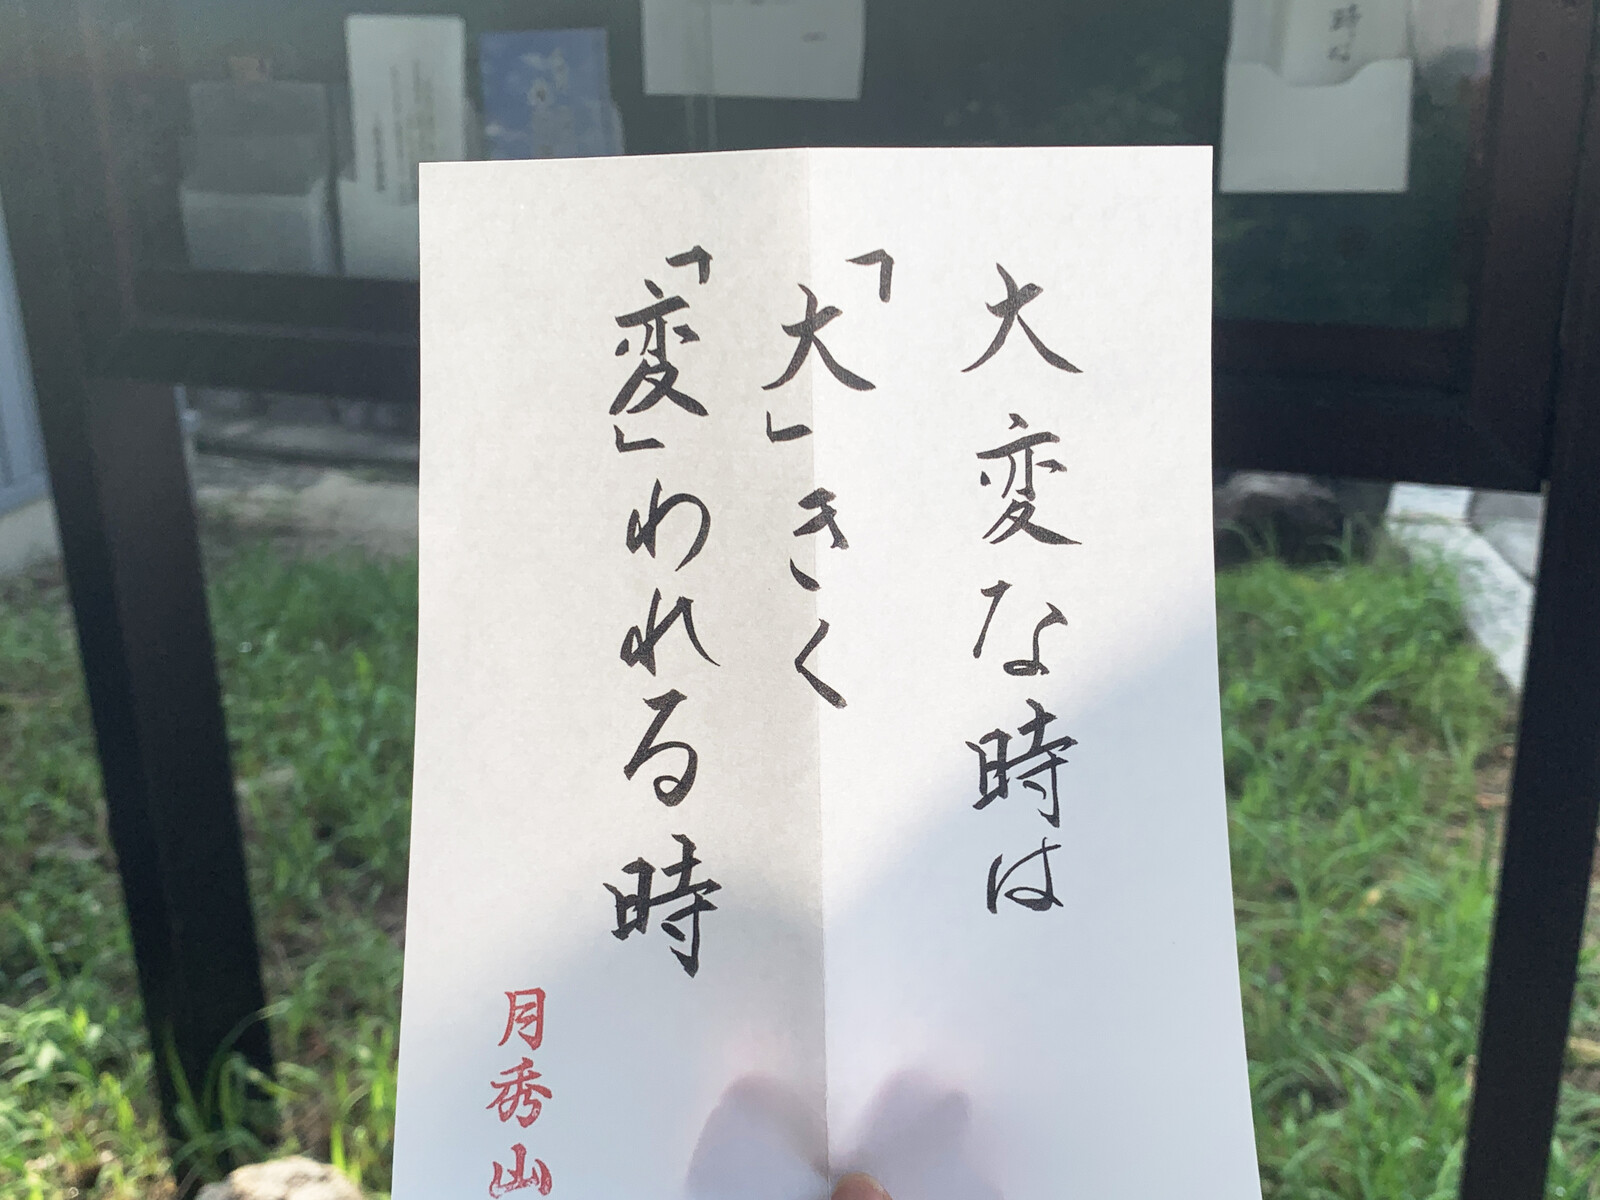 大変な時は
「大」きく
「変」われる時
月秀山
時な